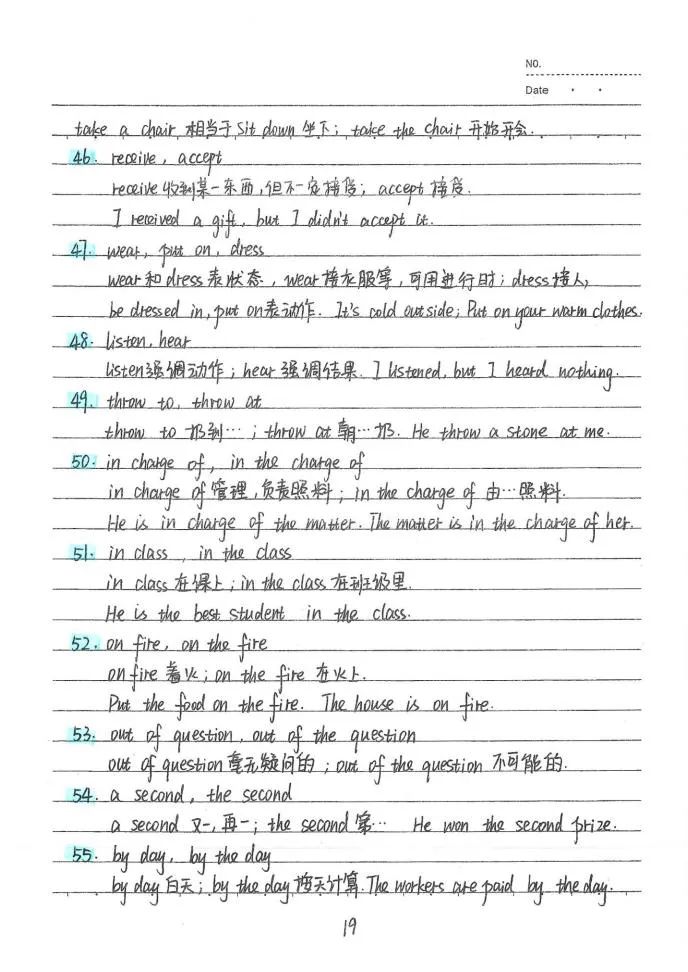 NO.
Date
take a chair 相当于 sit down 坐下; take the chair 开始开会.
46. receive, accept
receive 收到某一东西,但不一定接受; accept 接受.
I received a gift, but I didn't accept it.
47. wear, put on, dress
wear和dress表状态, wear接衣服等, 可用进行时; dress接人,
be dressed in, put on表动作. It's cold outside; Put on your warm clothes.
48. listen, hear
listen强调动作; hear 强调结果. I listened, but I heard nothing.
49. throw to, throw at
throw to 扔到…; throw at 朝…扔. He throw a stone at me.
50. in charge of, in the charge of
in charge of 管理,负责照料; in the charge of 由…照料.
He is in charge of the matter. The matter is in the charge of her.
51. in class, in the class
in class 在课上; in the class 在班级里.
He is the best student in the class.
52. on fire, on the fire
on fire 着火; on the fire 在火上.
Put the food on the fire. The house is on fire.
53. out of question, out of the question
out of question 毫无疑问的; out of the question 不可能的.
54. a second, the second
a second 又一,再一; the second 第… He won the second prize.
55. by day, by the day
by day 白天; by the day 按天计算. The workers are paid by the day.
19